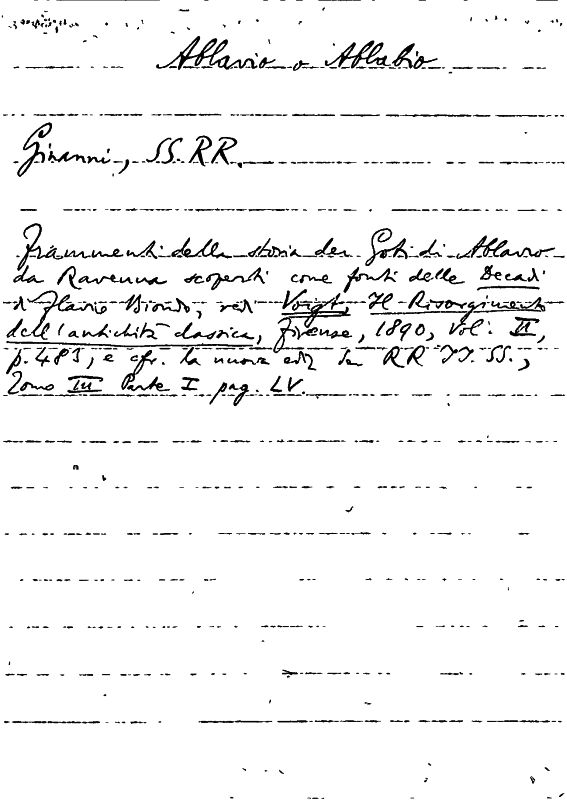 Ablavio o Ablabio
Ginanni, SS. RR.
Frammenti della storia dei Goti di Ablavio
da Ravenna scoperti come fonti delle Decadi
di Flavio Biondo, vedi Voigt, Il Risorgimento
dell'antichità classica, Firenze, 1890, Vol. II,
p. 483, e cfr. la nuova ediz RR II. SS.,
Tomo III Parte I pag. LV.